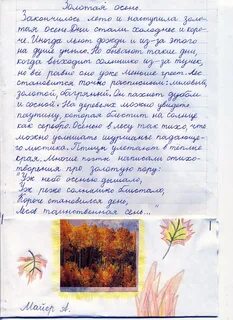 Золотая осень.
Закончилось лето и наступила золо-
тая осень. Дни стали холоднее и коро-
че. Иногда льют дожди и из-за этого
на душе унылo. Но бывают такие дни,
когда выходит солнышко из-за туч,
но все равно оно уже меньше греет. Лес
становится точно расписной: лиловый,
золотой, багряный. Он пахнет дубом
и сосной. На деревьях можно увидеть
паутину, которая блестит на солнце
как серебро. Осенью в лесу так тихо, что
можно услышать шуршанье падающе-
го листика. Птицы улетают в тёплые
края. Многие поэты написали стихо-
творения про золотую пору:
"Уж небо осенью дышало,
Уж реже солнышко блистало,
Короче становился день,
Лесов таинственная сень..."
Майер А.